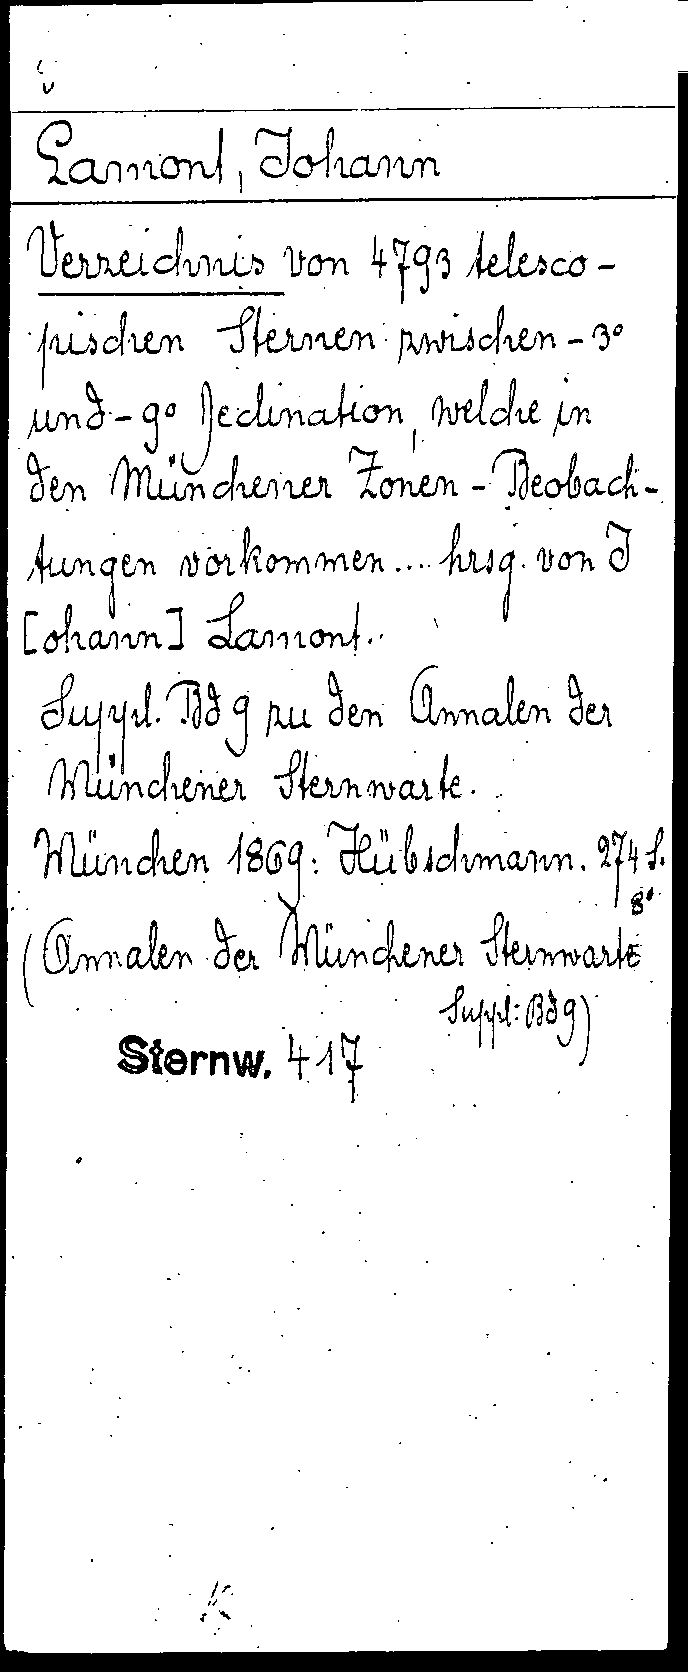 Lamont, Johann
Verzeichnis von 4793 telesco-
pischen Sternen zwischen -3°
und -9° Declination, welche in
den Münchener Zonen-Beobach-
tungen vorkommen.... hrsg. von J
[ohann] Lamont..
Suppl. Bd 9 zu den Annalen der
Münchener Sternwarte.
München 1869: Hübschmann. 274 S.
8°
(Annalen der Münchener Sternwarte
Suppl: Bd 9)
Sternw. 417